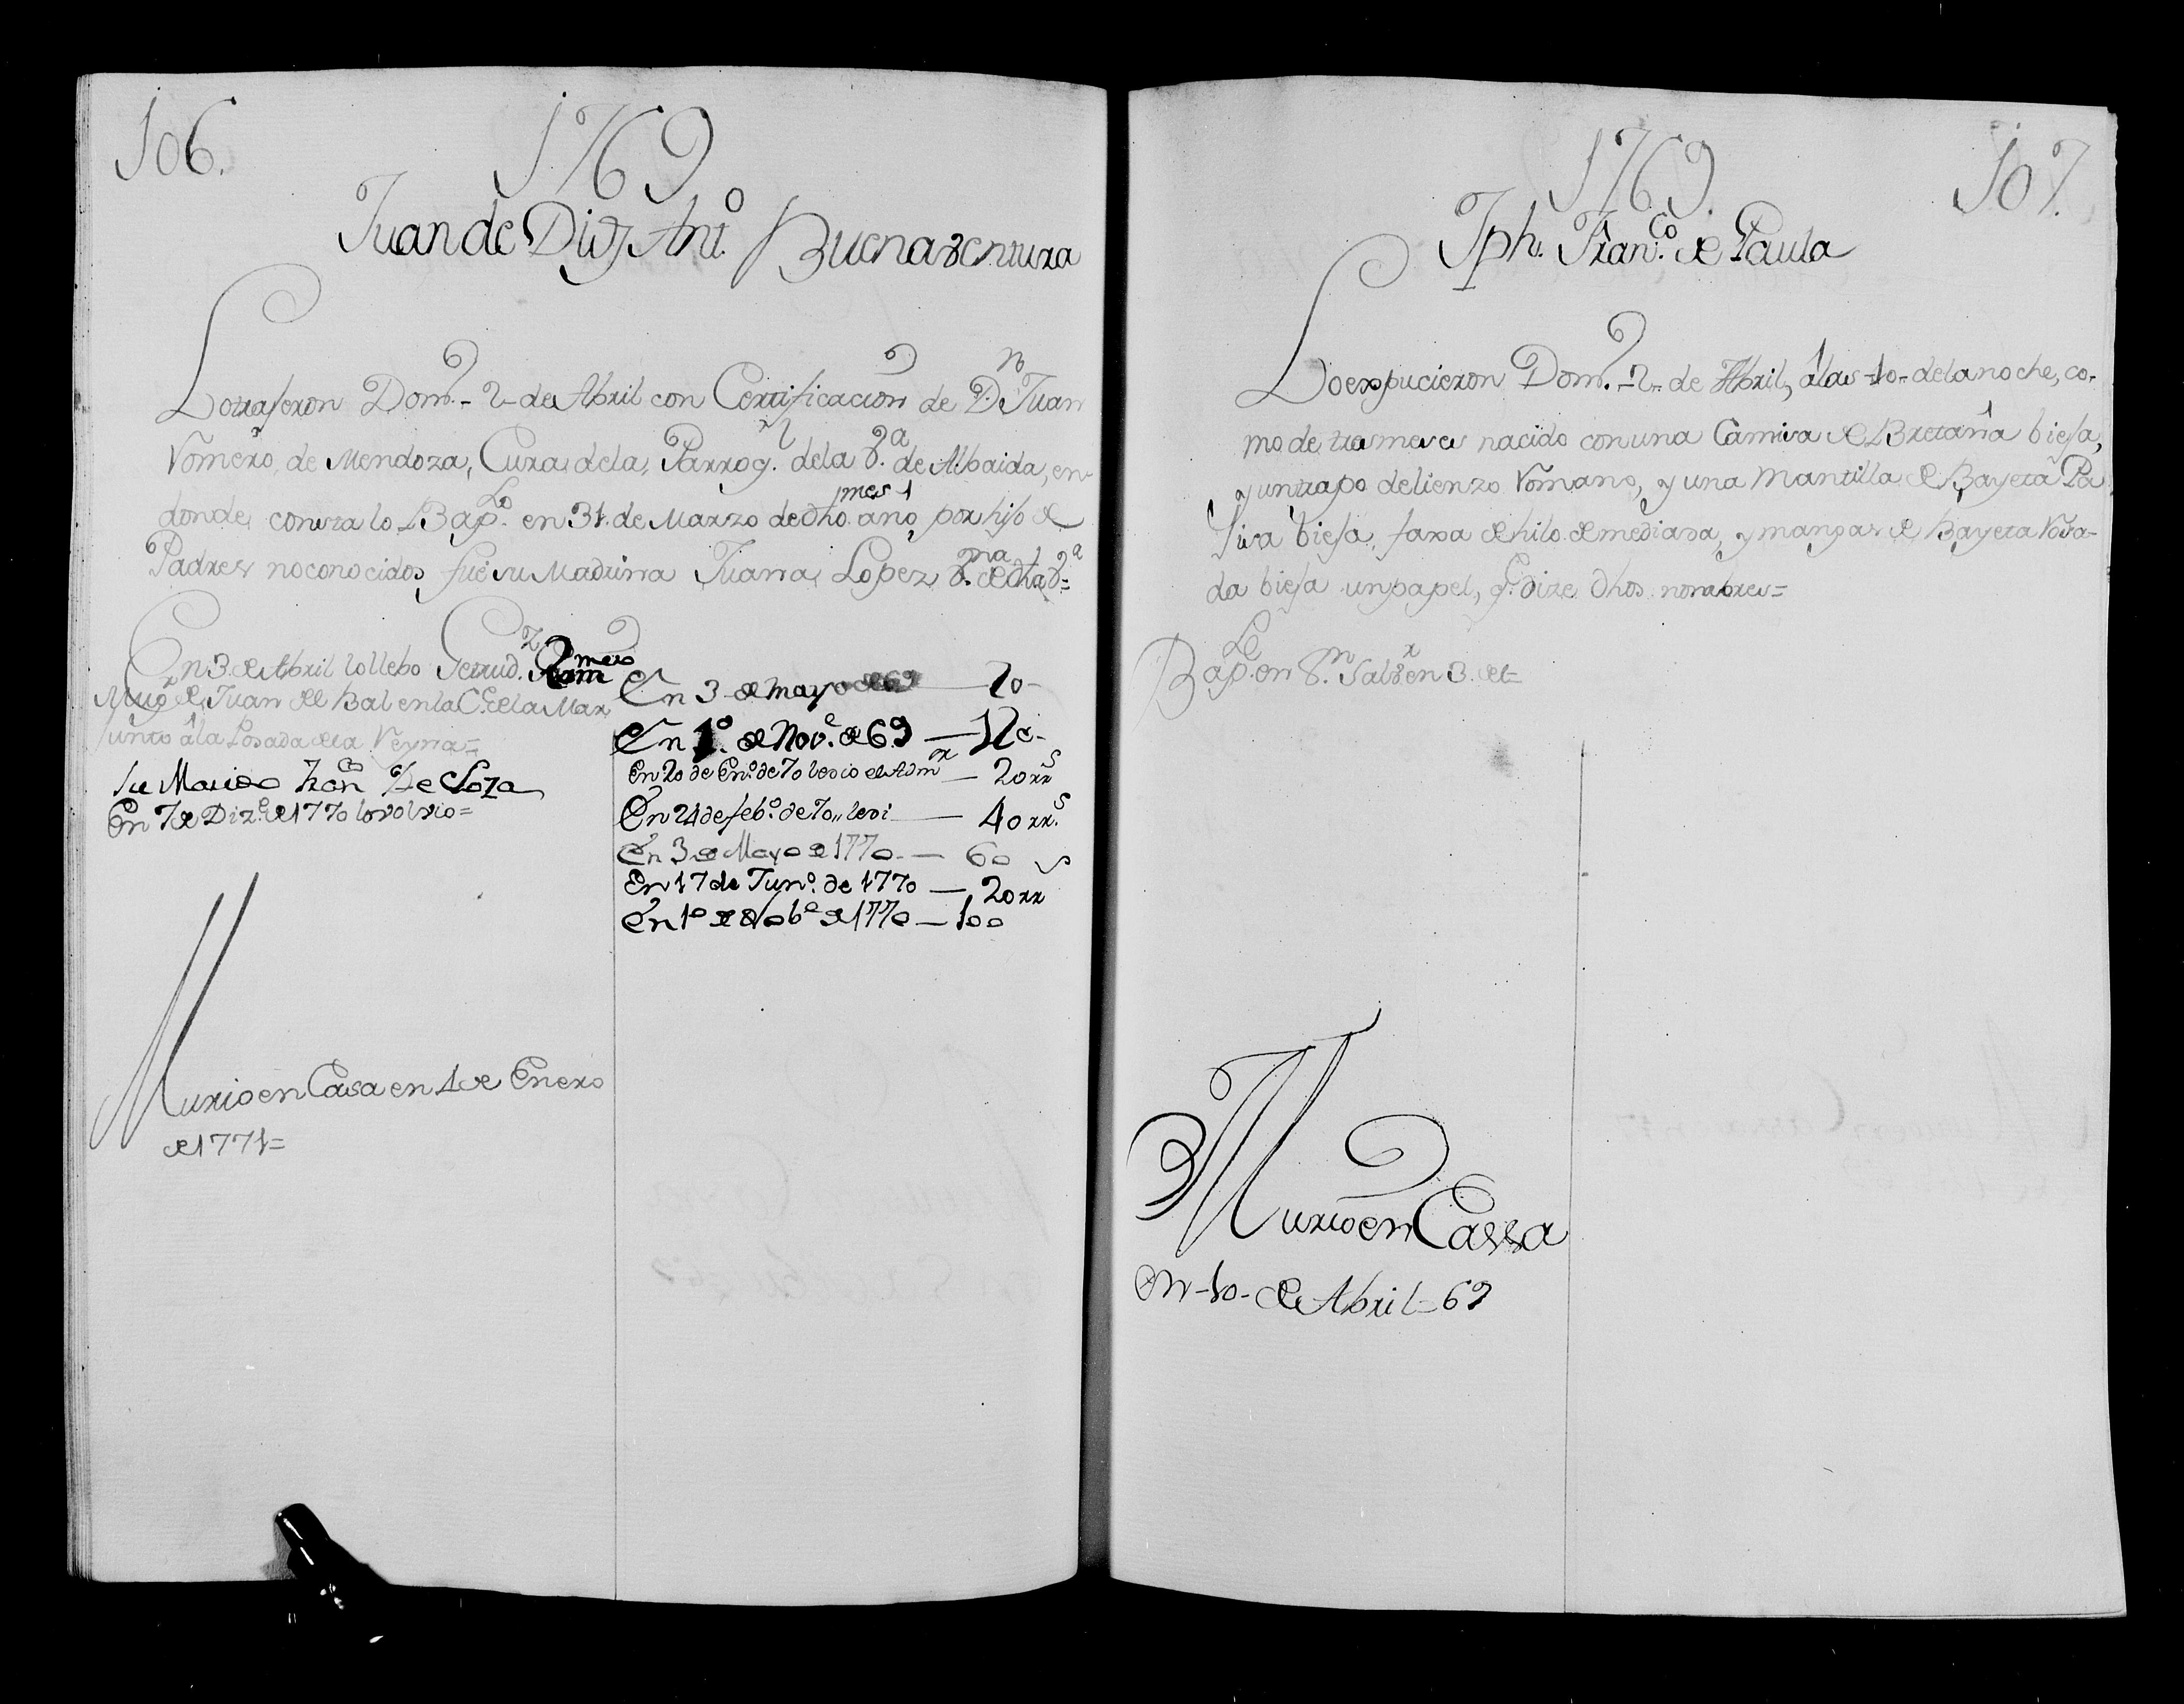 106.
1769
Juan de Dios Ant.º Buenaventura
Lo trageron Dom.º - 2 - de Abril con Certificacion de D.n Juan
Romero de Mendoza, Cura de la Parroq.l de la V.a de Albaida, en
donde consta lo Bap.Lo en 31. de Marzo de dho mes año, por hijo de
Padres no conocidos, fue su Madrina Juana Lopez V.na de dha V.a=
En 3. de Abril lo llebo Getrud.z Romero
Mug.r de Juan del Bal en la C.e de la Mar
junto â la Posada de la Reyna=
su Marido Fran.co De Loza
En 7 de Diz.e de 1770 lo volvio=
Murio en Casa en 4 de Enero
de 1771=
En 3 de mayo de 69 — 20-
En 1.º de Nov.e de 69 — 120-
En 20 de En.º de 70 le dio el Adm.or — 20 rr.s
En 24 de feb.º de 70,, le di — 40 rr.s
En 3 de Mayo de 1770 — 60
En 17 de Jun.º de 1770 — 20 rr
En 1º de Nob.e de 1770 — 100
1769.
107.
Jph. Fran.co de Paula
Lo expucieron Dom.º - 2 - de Abril, â las - 10 - de la noche, co-
mo de tres meses nacido con una Camisa de Bretaña biesa,
y un trapo de lienzo Romano, y una Mantilla de Bayeta Pa
jisa biesa, faxa de hilo de mediana, y mangas de Bayeta Rosa-
da biesa un papel, q.e dize dhos. nombres=
Bap.Le en S.n Salv.r en 3. de
Murio en Cassa
en - 10 - de Abril = 69